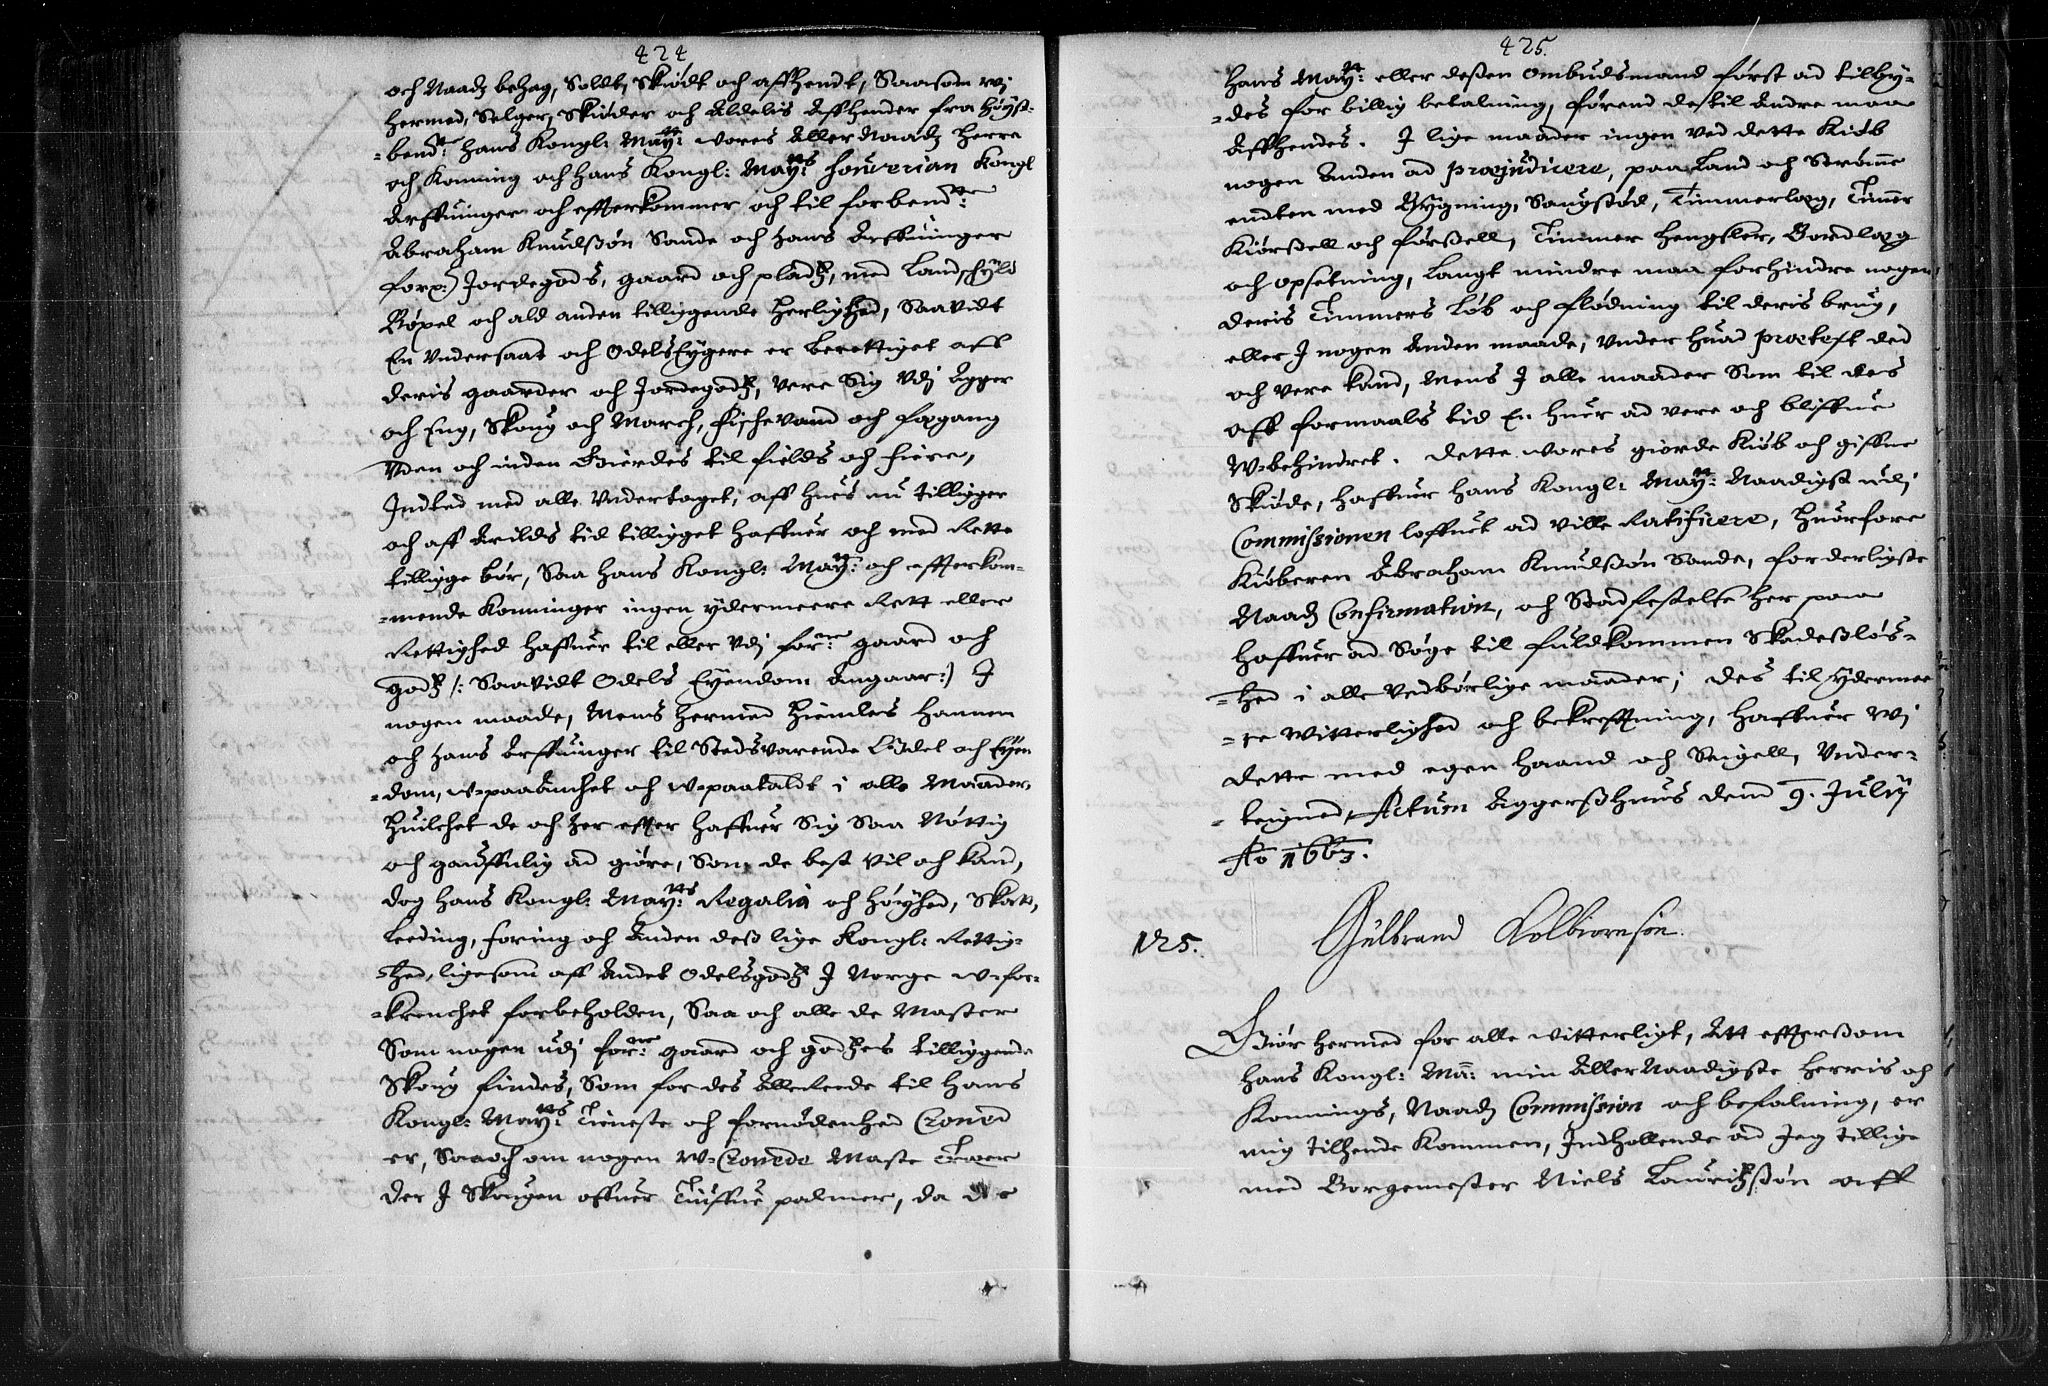 424
och Naadz behag, Soldt, Skiødt och affhendt, Saasom wj
hermed, Selger, Skiøder och Aldelis Affhender fra høyst-
=bendte: Hans Kongl: Maytt: wores Aller Naadz Herre
och Konning och Hans Kongl: Maytts: souverian Kongl
Arffuinger och efferkommer och til forbendte:
Abraham Knudßøn Sande och hans Arffuinger
forn:) Jordegods, gaard och pladz, med Landschyld
Bøxel och ald anden tilliggende herlighed, Saavidt
En Vndersaat och Odels Eygere er berettiget aff
deris gaarder och Jordegodz, vere Sig Vdj Agger
och Eng, Skoug och March, fischevand och fægang
Vden och inden Gierdes til fields och fiere,
Indted med alle Vndertaget, aff hues nu tilligger
och aff Arilds tid tilligget haffuer och med Rette
tilligge bør, Saa Hans Kongl: Maytt: och efferkom-
=mende Konninger ingen ydermeere Rett eller
Rettighed haffuer til eller Vdj forne: gaard och
godz /: Saavidt Odels Eyendom Angaar:) I
nogen maade, Mens hermed hiemles hannem
och hans Arffuinger til Stedsvarende Odel och Eyen
=dom, w=paaanchet och w=paataldt i alle Maader,
Huilchet de och her effter haffuer Sig Saa Nøttig
och gauffnlig ad giøre, Som de best vil och kand,
dog Hans Kongl: Maytts: Regalia och høyhed, Skatt,
Leeding, foring och Anden deß lige Kongl: Rettig-
=hed, ligesom aff Andet Odelsgodz I Norge w=for-
=krenchet forbeholden, Saa och alle de Master
Som nogen udj forne: gaard och godzes tilliggende
Skoug findes, Som for des Allerede til Hans
Kongl: Maytts: Tieneste och fornødenhed Croned
er, Saa och om nogen w=Cronede Maste Træer
der I Skougen offuer Tiuffue palmer, da de
425.
Hans Maytt: eller deßen Ombudsmand først ad tilby-
=des for billig betalning, førend des til Andre maa
Affhendes. I lige maader ingen ved dette Kiøb
nogen Anden ad præjudicere, paa Land och Strømme
endten med Bygning, Saugstød, Timmerlaag, Timer
Kiørßell och førßell, Timmer hengster, Bordlaag
och opsetning, Langt mindre maa forhindre nogen,
deris Timmers Løb och flødning til deris brug,
eller I nogen Anden maade, Vnder huad prætext ded
och vere kand, Mens I alle maader Som til des
aff formaals tid En huer ad vere och bliffue
W=behindret. Dette wores giorde Kiøb och giffne
Skiøde, haffuer Hans Kongl: Maytt: Naadigst udj
Commissionen loffuet ad ville Ratificere, huorfore
Kiøberen Abraham Knudßøn Sande, forderligste
Naadz Confirmation, och Stadfestelse her paa
haffuer ad Søge til fuldkommen Skadeßløs-
=hed i alle Vedbørlige maader; Des til Ydermee
=re Witterlighed och bekrefftning, haffuer Wj
dette med egen haand och Seigell, Vnder-
=teigned, Actum Aggerßhuus dend 9. Julij
Ao 1663.
125.
Gulbrand Colbiørnsøn.
Giør hermed for alle witterligt, Att effterßom
Hans Kongl: Ma: min Aller Naadigste Herris och
Konnings, Naadz Commission och befalning, er
mig tilhende Kommen, Indhollende ad Jeg tillige
med Borgemester Niels Lauridzßøn aff